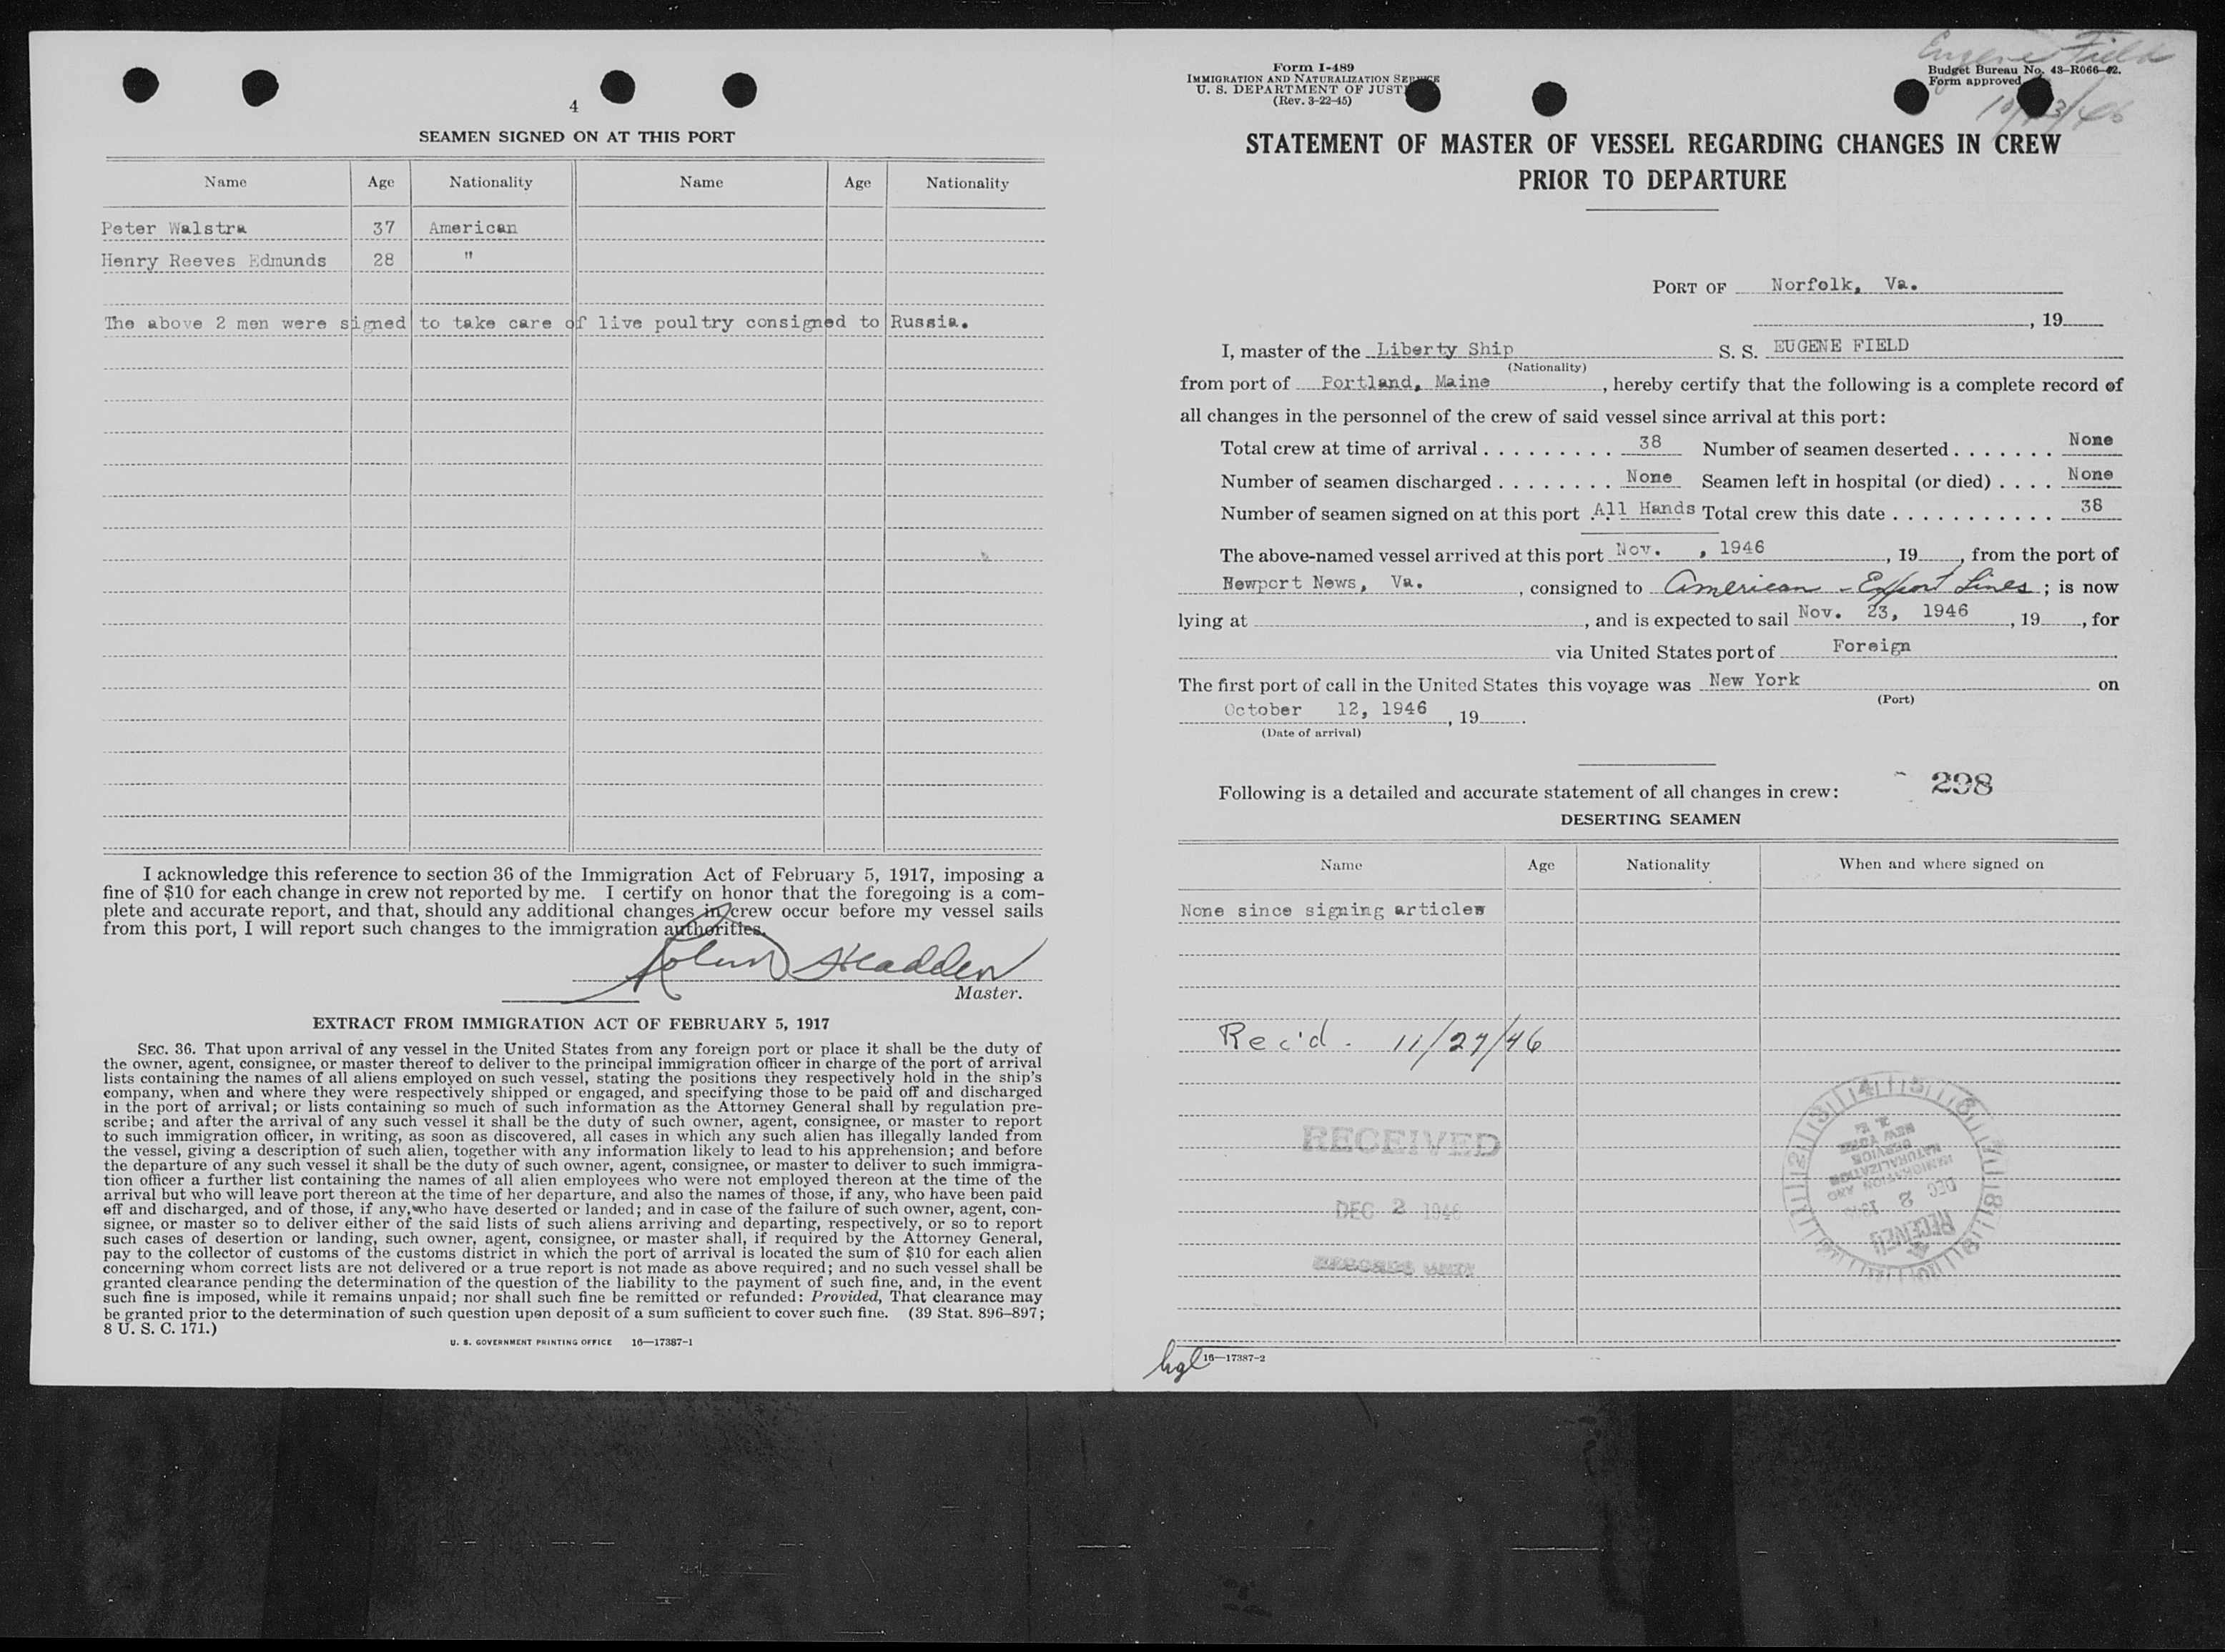 4
SEAMEN SIGNED ON AT THIS PORT
Name Age Nationality Name Age Nationality
Peter Walstra 37 American
Henry Reeves Edmunds 28 "
The above 2 men were signed to take care of live poultry consigned to Russia.
I acknowledge this reference to section 36 of the Immigration Act of February 5, 1917, imposing a
fine of $10 for each change in crew not reported by me. I certify on honor that the foregoing is a com-
plete and accurate report, and that, should any additional changes in crew occur before my vessel sails
from this port, I will report such changes to the immigration authorities.
Master.
EXTRACT FROM IMMIGRATION ACT OF FEBRUARY 5, 1917
SEC. 36. That upon arrival of any vessel in the United States from any foreign port or place it shall be the duty of
the owner, agent, consignee, or master thereof to deliver to the principal immigration officer in charge of the port of arrival
lists containing the names of all aliens employed on such vessel, stating the positions they respectively hold in the ship's
company, when and where they were respectively shipped or engaged, and specifying those to be paid off and discharged
in the port of arrival; or lists containing so much of such information as the Attorney General shall by regulation pre-
scribe; and after the arrival of any such vessel it shall be the duty of such owner, agent, consignee, or master to report
to such immigration officer, in writing, as soon as discovered, all cases in which any such alien has illegally landed from
the vessel, giving a description of such alien, together with any information likely to lead to his apprehension; and before
the departure of any such vessel it shall be the duty of such owner, agent, consignee, or master to deliver to such immigra-
tion officer a further list containing the names of all alien employees who were not employed thereon at the time of the
arrival but who will leave port thereon at the time of her departure, and also the names of those, if any, who have been paid
off and discharged, and of those, if any, who have deserted or landed; and in case of the failure of such owner, agent, con-
signee, or master so to deliver either of the said lists of such aliens arriving and departing, respectively, or so to report
such cases of desertion or landing, such owner, agent, consignee, or master shall, if required by the Attorney General,
pay to the collector of customs of the customs district in which the port of arrival is located the sum of $10 for each alien
concerning whom correct lists are not delivered or a true report is not made as above required; and no such vessel shall be
granted clearance pending the determination of the question of the liability to the payment of such fine, and, in the event
such fine is imposed, while it remains unpaid; nor shall such fine be remitted or refunded: Provided, That clearance may
be granted prior to the determination of such question upon deposit of a sum sufficient to cover such fine. (39 Stat. 896–897;
8 U. S. C. 171.)
U. S. GOVERNMENT PRINTING OFFICE 16—17387-1
Eugene Field
Form I-489
IMMIGRATION AND NATURALIZATION SERVICE
U. S. DEPARTMENT OF JUST
(Rev. 3-22-45)
Budget Bureau No. 43-R066-42.
Form approved
STATEMENT OF MASTER OF VESSEL REGARDING CHANGES IN CREW
PRIOR TO DEPARTURE
PORT OF Norfolk, Va.
, 19
I, master of the Liberty Ship S. S. EUGENE FIELD
(Nationality)
from port of Portland, Maine, hereby certify that the following is a complete record of
all changes in the personnel of the crew of said vessel since arrival at this port:
Total crew at time of arrival . . . . . . . . . 38 Number of seamen deserted . . . . . . . None
Number of seamen discharged . . . . . . . . None Seamen left in hospital (or died) . . . . None
Number of seamen signed on at this port . . All Hands Total crew this date . . . . . . . . . . . 38
The above-named vessel arrived at this port Nov. , 1946 , 19 , from the port of
Newport News, Va. , consigned to American-Export Lines ; is now
lying at , and is expected to sail Nov. 23, 1946 , 19 , for
via United States port of Foreign
The first port of call in the United States this voyage was New York on
(Port)
October 12, 1946 , 19 .
(Date of arrival)
Following is a detailed and accurate statement of all changes in crew: 298
DESERTING SEAMEN
Name Age Nationality When and where signed on
None since signing articles
Rec'd. 11/27/46
RECEIVED
DEC 2 1946
RECORDS UNIT
RECEIVED
DEC 2 1946
IMMIGRATION AND
NATURALIZATION
SERVICE
NEW YORK
N. Y.
16—17387-2